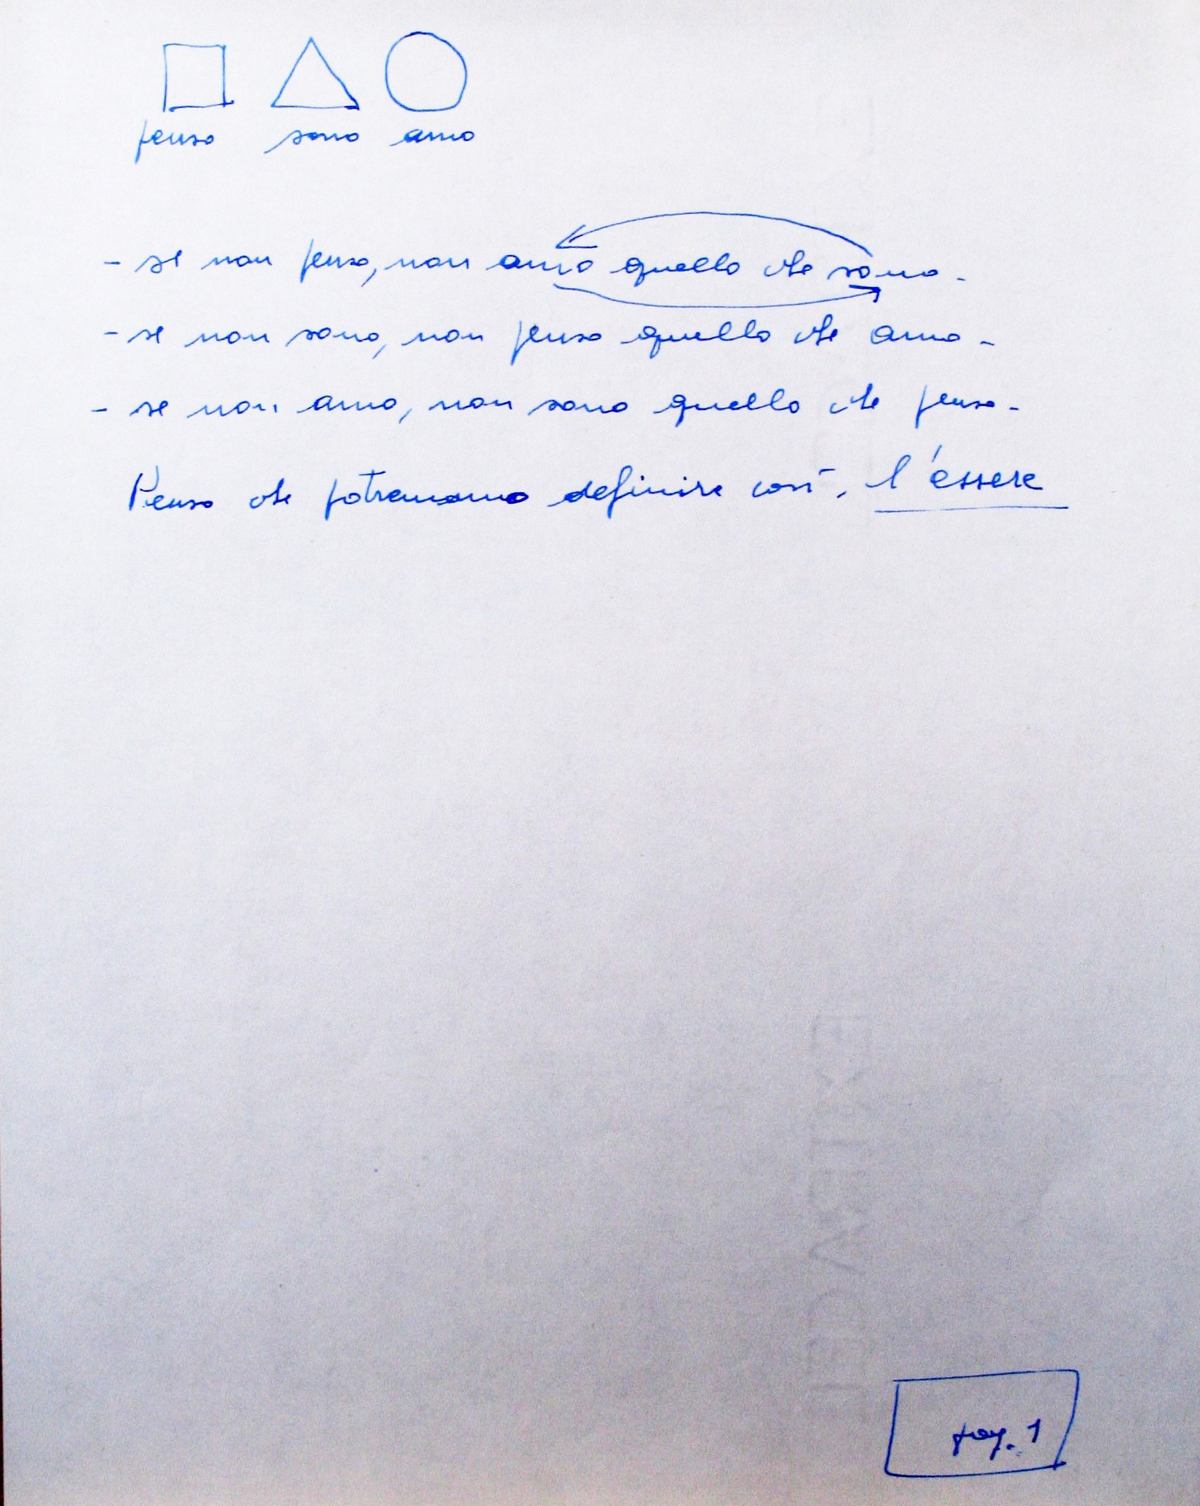 penso sono amo
- se non penso, non amo quello che sono.
- se non sono, non penso quello che amo.
- se non amo, non sono quello che penso.
Penso che potremmo definire così, l'essere
pag. 1